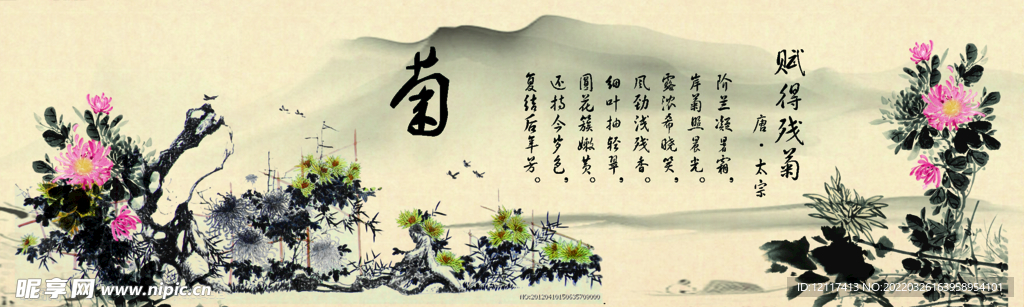 赋得残菊
唐·太宗
阶兰凝暑霜，
岸菊照晨光。
露浓希晓笑，
风劲浅残香。
细叶抽轻翠，
圆花簇嫩黄。
还持今岁色，
复结后年芳。
菊
昵享网 www.nipic.cn
NO:20120410150635700000
ID:12117413 NO:20220326163958954101